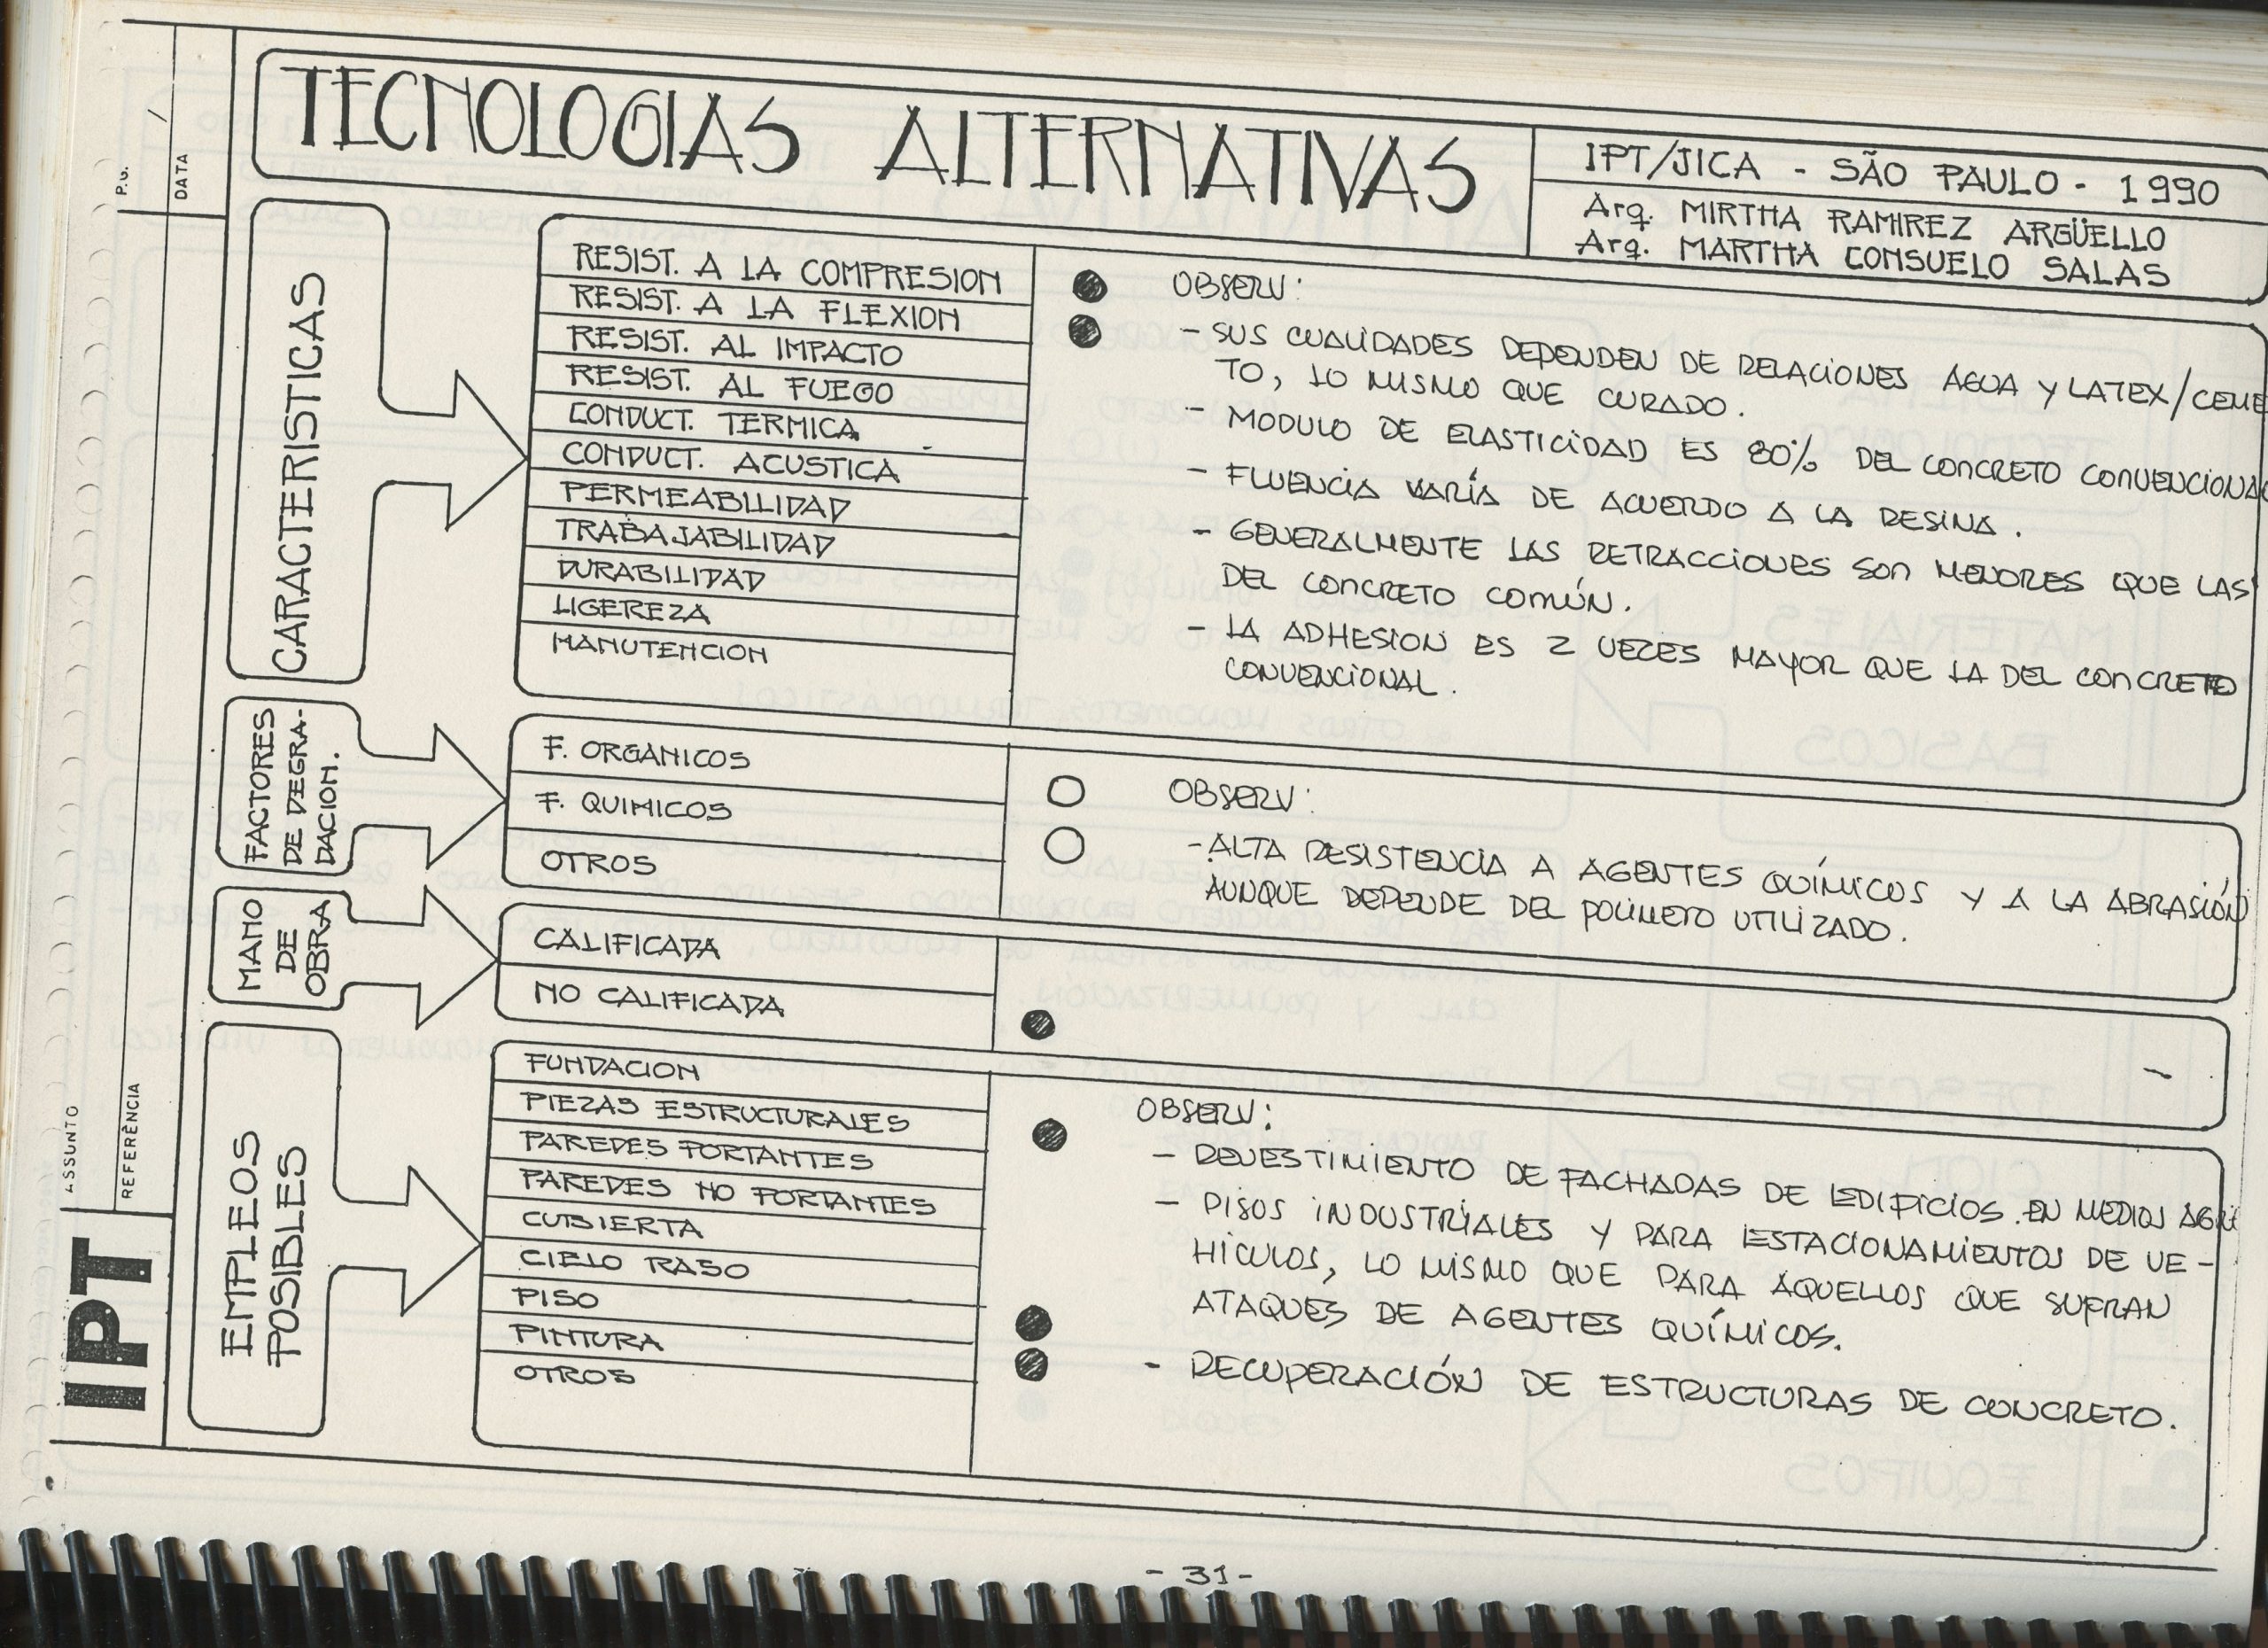 TECNOLOGIAS ALTERNATIVAS
IPT/JICA - SÃO PAULO - 1990
Arq. MIRTHA RAMIREZ ARGÜELLO
Arq. MARTHA CONSUELO SALAS
P.G.
DATA
ASSUNTO
REFERÊNCIA
IPT
CARACTERISTICAS
RESIST. A LA COMPRESION
RESIST. A LA FLEXION
RESIST. AL IMPACTO
RESIST. AL FUEGO
CONDUCT. TERMICA
CONDUCT. ACUSTICA
PERMEABILIDAD
TRABAJABILIDAD
DURABILIDAD
LIGEREZA
MANUTENCION
OBSERV:
- SUS CUALIDADES DEPENDEN DE RELACIONES AGUA Y LATEX/CEME
TO, LO MISMO QUE CURADO.
- MODULO DE ELASTICIDAD ES 80% DEL CONCRETO CONVENCIONAL
- FLUENCIA VARÍA DE ACUERDO A LA RESINA.
- GENERALMENTE LAS RETRACCIONES SON MENORES QUE LAS
DEL CONCRETO COMÚN.
- LA ADHESION ES 2 VECES MAYOR QUE LA DEL CONCRETO
CONVENCIONAL.
FACTORES
DE DEGRA-
DACION.
F. ORGANICOS
F. QUIMICOS
OTROS
OBSERV:
- ALTA RESISTENCIA A AGENTES QUÍMICOS Y A LA ABRASIÓN
AUNQUE DEPENDE DEL POLIMERO UTILIZADO.
MANO
DE
OBRA
CALIFICADA
NO CALIFICADA
EMPLEOS
POSIBLES
FUNDACION
PIEZAS ESTRUCTURALES
PAREDES PORTANTES
PAREDES NO PORTANTES
CUBIERTA
CIELO RASO
PISO
PINTURA
OTROS
OBSERV:
- REVESTIMIENTO DE FACHADAS DE EDIFICIOS. EN MEDIOS AGR
- PISOS INDUSTRIALES Y PARA ESTACIONAMIENTOS DE VE-
HICULOS, LO MISMO QUE PARA AQUELLOS QUE SUFRAN
ATAQUES DE AGENTES QUÍMICOS.
- RECUPERACIÓN DE ESTRUCTURAS DE CONCRETO.
- 31 -